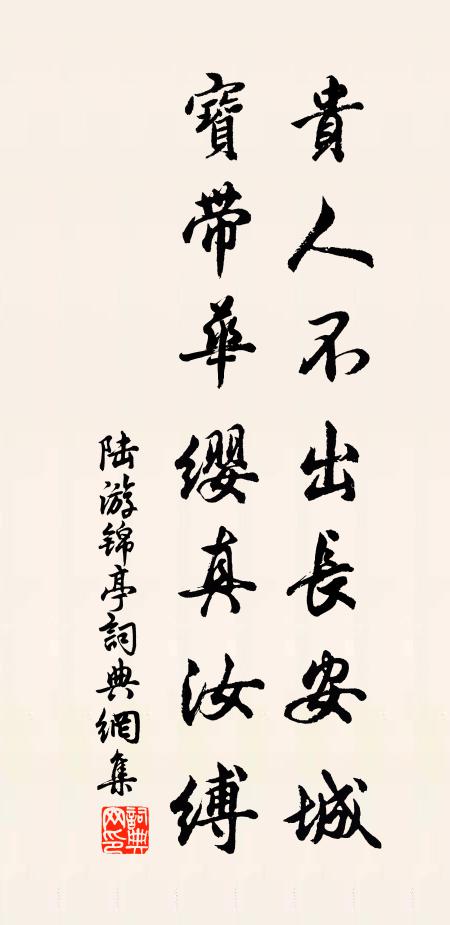 貴人不出長安城
寶帶華纓真汝縛
陆游锦亭詞典網集
詞典网印